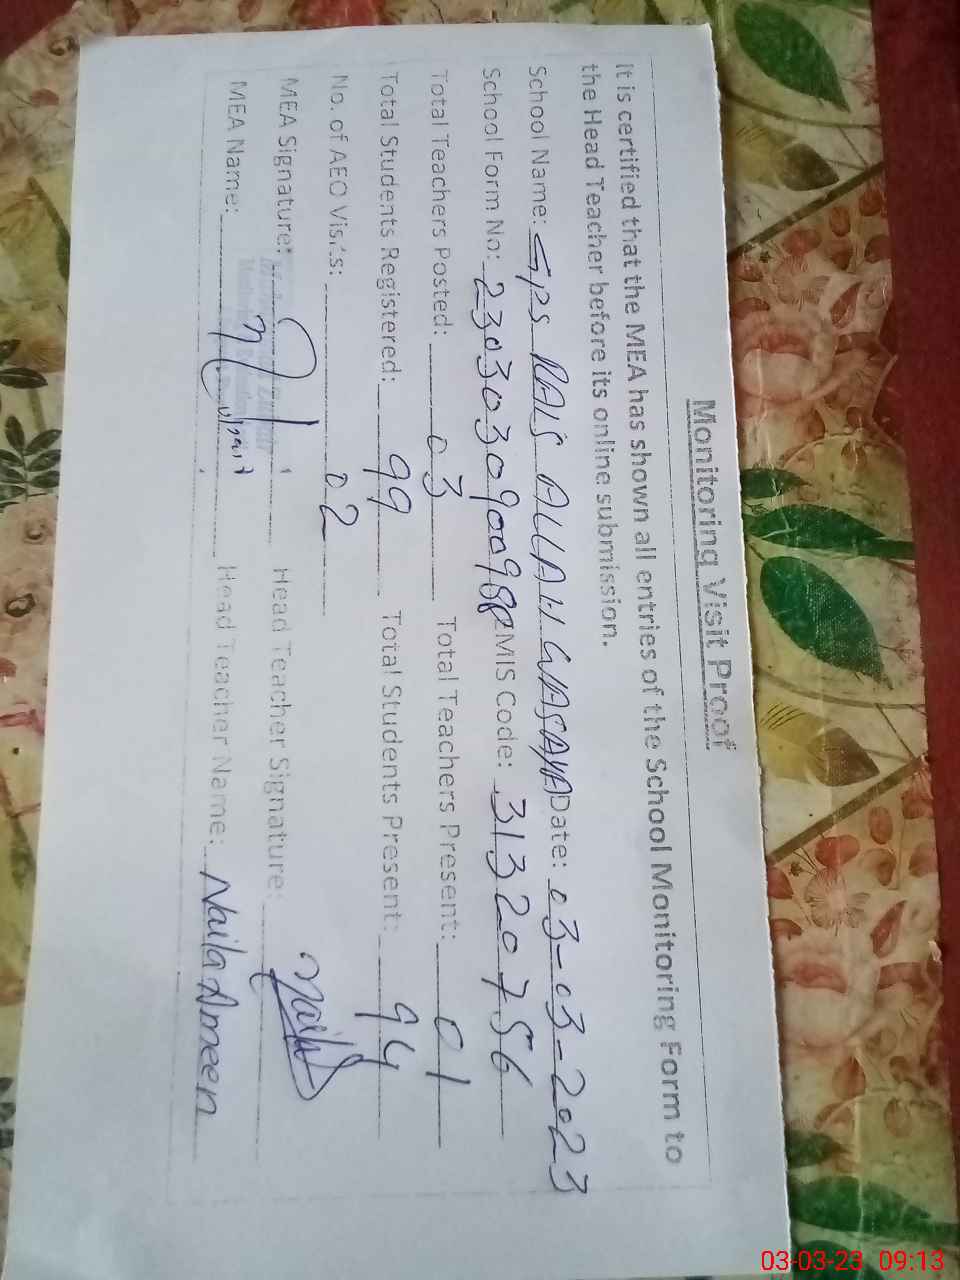 Monitoring Visit Proof
It is certified that the MEA has shown all entries of the School Monitoring Form to
the Head Teacher before its online submission.
School Name: GPS RAIS ALLAH WASAYA Date: 03-03-2023
School Form No: 2303030900988 MIS Code: 31320756
Total Teachers Posted: 03 Total Teachers Present: 01
Total Students Registered: 99 Total Students Present: 94
No. of AEO Visits: 02
MEA Signature: Head Teacher Signature: Naila
MEA Name: Head Teacher Name: Naila Ameen
03-03-23 09:13